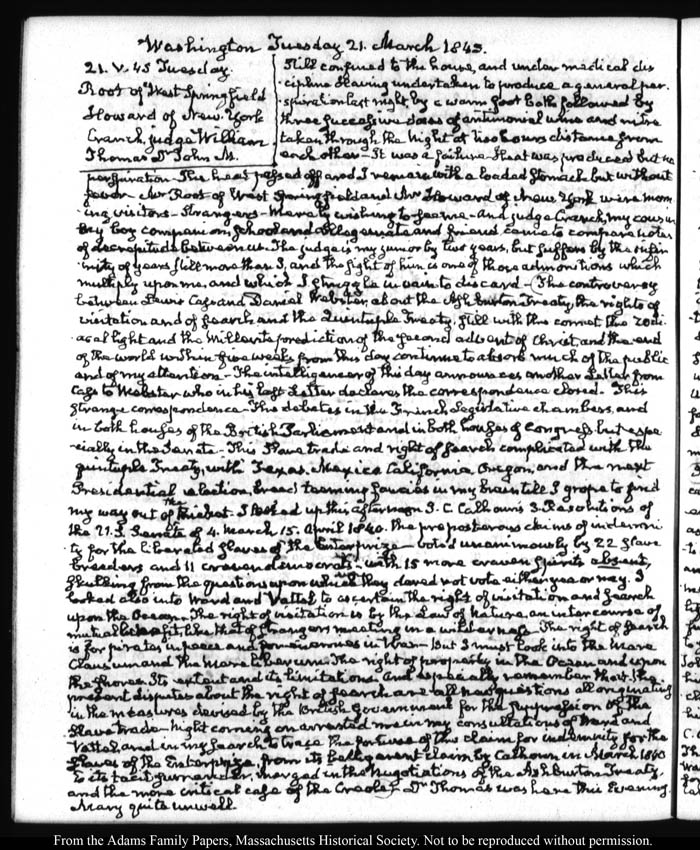 Washington Tuesday 21. March 1843.
21. V. 45 Tuesday.
Root of West Springfield
Howard of New York
Cranch, judge William
Thomas Dr John M.
Still confined to the house, and under medical dis-
-cipline having undertaken to produce a general per-
-spiration last night, by a warm foot bath followed by
three successive doses of antimonial wine and nitre
taken through the Night at two hours distance from
each other - It was a failure. Heat was produced but no
perspiration - The heat passed off and I remain with a loaded stomach but without
fever. Mr Root of West Springfield and Mr Howard of New York were morn-
-ing visitors - Strangers - Merely wishing to see me - And judge Cranch, my cousin
my boy companion, School and College mate and friend came to compare notes
of decrepitude between us. The judge is my junior by two years, but suffers by the infir-
-mity of years still more than I, and the sight of him is one of those admonitions which
multiply upon me, and which I struggle in vain to discard - (The controversy
between Lewis Cass and Daniel Webster, about the Ashburton Treaty, the rights of
visitation and of search and the Quintuple Treaty, still with the comet the zodi-
-acal light and the Millerite prediction of the second advent of Christ, and the end
of the world within five weeks from this day continue to absorb much of the public
and of my attention - The intelligencer of this day announces another Letter from
Cass to Webster who in his last Letter declares the correspondence closed. This
strange correspondence - The debates in the French Legislative chambers, and
in both houses of the British Parliament and in both houses of Congress but espe-
-cially in the Senate - This Slave trade and right of search complicated with the
quintuple Treaty, with Texas, Mexico California Oregon, and the next
Presidential election, breed teeming fancies in my brain till I grope to find
my way out of the thicket. I looked up this afternoon J. C. Calhoun's 3 Resolutions of
the U. S. Senate of 4. March 15. April 1840. the preposterous claims of indemni-
-ty for the liberated slaves of the Enterprize - voted unanimously by 22 slave
breeders and 11 craven democrats - with 15 more craven spirits absent,
skulking from the questions upon which they dared not vote either yea or nay. I
looked also into Ward and Vattel to ascertain the right of visitation and search
upon the Ocean. The right of visitation is by the Law of Nature, an intercourse of
mutual benefit, like that of strangers meeting in a wilderness. The right of search
is for pirates in peace and for enemies in War - But I must look into the Mare
Clausum and the Mare Liberum. The right of property in the Ocean and upon
the shores. Its extent and its limitations. And especially remember that the
present disputes about the right of search are all new questions all originating
in the measures devised by the British Government for the suppression of the
Slave trade - Night coming on arrested me in my consultations of Ward and
Vattel, and in my search to trace the fortunes of this claim for indemnity for the
Slaves of the Enterprize, from its belligerent claim by Calhoun in March 1840
to its tacit surrender, merged in the negotiations of the Ashburton Treaty,
and the more critical case of the Creole.) Dr Thomas was here this Evening.
Mary quite unwell.
From the Adams Family Papers, Massachusetts Historical Society. Not to be reproduced without permission.